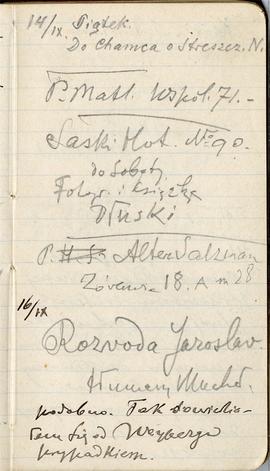 14/IX Piątek.
Do Chamca o Streszcz. N.
P. Matl. Wspól. 71. –
Saski Hot. № 90.
do Soboty
Fotogr. i książkę
Dłuski
P. Alter Salzman
18. A m 28
16/IX
Rozvoda Jaroslav.
podobno. Tak dowiedzia-
łem się od Weyberga
przypadkiem.